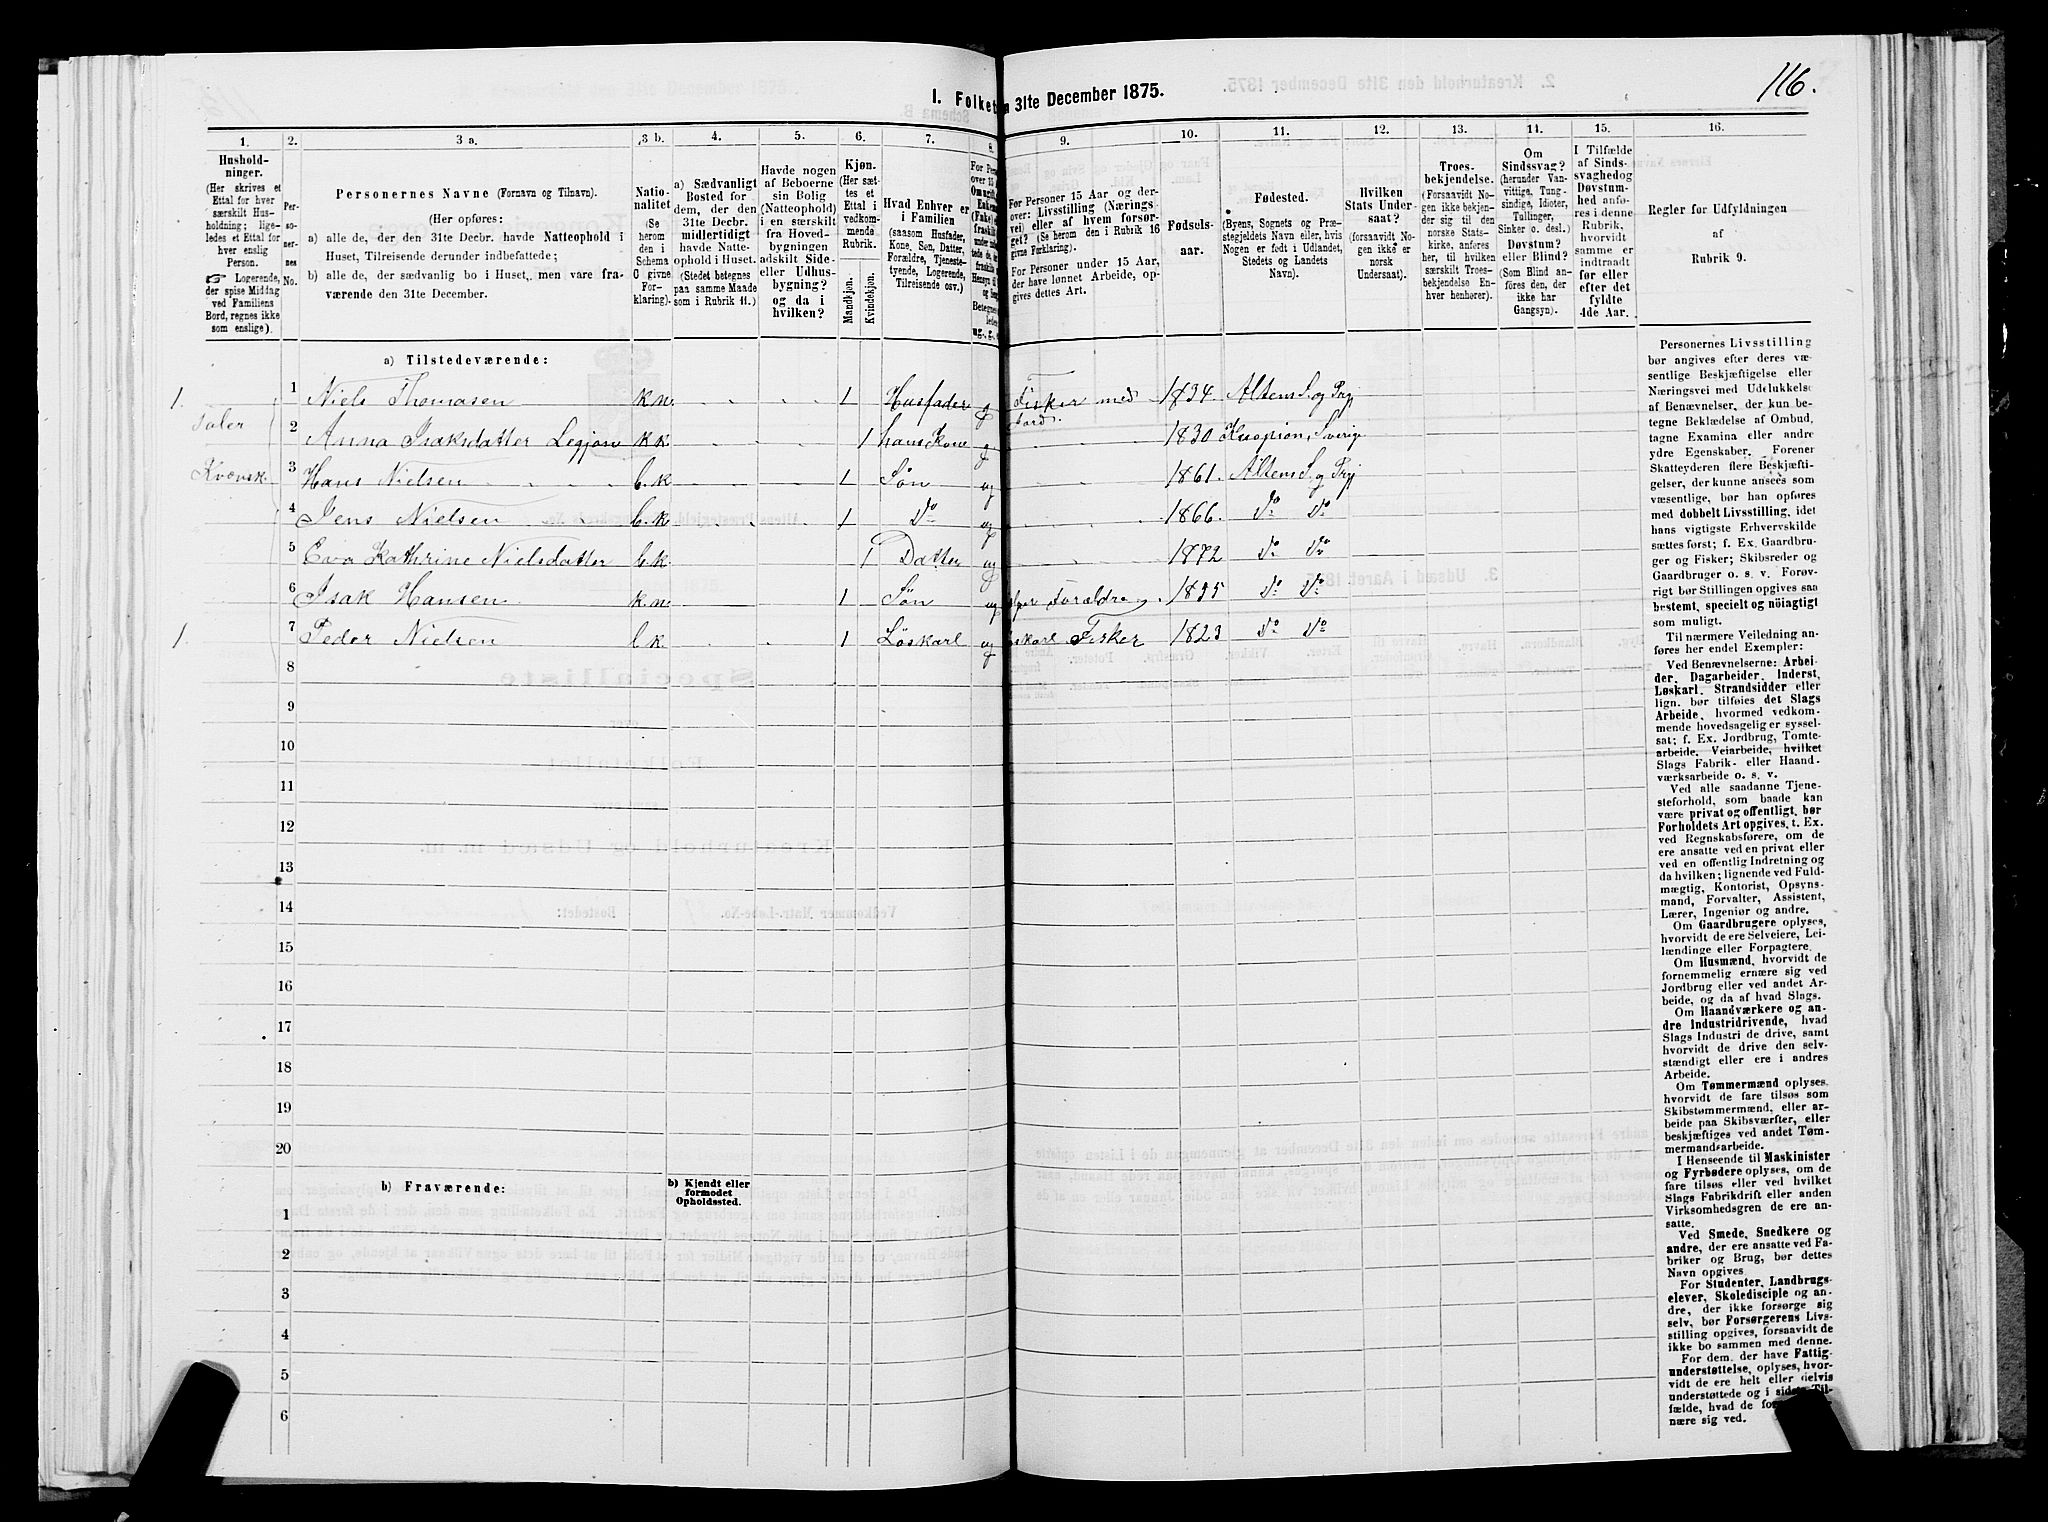 116.
I. Folket
n 31te December 1875.
1. 2. 3 a. 3 b. 4. 5. 6. 7. 8. 9. 10. 11. 12. 13. 14. 15. 16.
Hushold-
ninger.
(Her skrives et
Ettal for hver
særskilt Hus-
holdning; lige-
ledes et Ettal for
hver enslig
Person.
☞ Logerende,
der spise Middag
ved Familiens
Bord, regnes ikke
som enslige).
Per-
so-
ner-
nes
No.
Personernes Navne (Fornavn og Tilnavn).
(Her opføres:
a) alle de, der den 31te Decbr. havde Natteophold i
Huset, Tilreisende derunder indbefattede;
b) alle de, der sædvanlig bo i Huset, men vare fra-
værende den 31te December.
Natio-
nalitet
(Se
herom
den i
Schema
C givne
For-
klaring).
a) Sædvanligt
Bosted for
dem, der den
31te Decbr.
midlertidigt
havde Natte-
ophold i Huset.
(Stedet betegnes
paa samme Maade
som i Rubrik 11.)
Havde nogen
af Beboerne
sin Bolig
(Natteophold)
i en særskilt
fra Hoved-
bygningen
adskilt Side-
eller Udhus-
bygning?
og da i
hvilken?
Kjøn.
(Her sæt-
tes et
Ettal i
vedkom-
mende
Rubrik.
Mandkjøn.
Kvindekjøn.
Hvad Enhver er
i Familien
(saasom Husfader,
Kone, Søn, Datter,
Forældre, Tjeneste-
tyende, Logerende,
Tilreisende osv.)
For Personer 15 Aar og der-
over: Livsstilling (Nærings-
vei) eller af hvem forsør-
get? (Se herom den i Rubrik 16
givne Forklaring).
For Personer under 15 Aar,
der have lønnet Arbeide, op-
gives dettes Art.
Fødsels-
aar.
Fødested.
(Byens, Sognets og Præ-
stegjeldets Navn eller, hvis
Nogen er født i Udlandet,
Stedets og Landets
Navn).
Hvilken
Stats Under-
saat?
(forsaavidt No-
gen ikke er
norsk
Undersaat).
Troes-
bekjendelse.
(Forsaavidt No-
gen ikke bekjen-
der sig til den
norske Stats-
kirke, anføres
her, til hvilken
særskilt Troes-
bekjendelse En-
hver henhører).
Om
Sindssvag?
(herunder Van-
vittige, Tung-
sindige, Idioter,
Tullinger,
Sinker o. desl.)
Døvstum?
eller Blind?
(Som Blind an-
føres den, der
ikke har
Gangsyn).
I Tilfælde
af Sinds-
svaghed og
Døvstum-
hed anfø-
res i denne
Rubrik,
hvorvidt
samme er
indtraadt
før eller
efter det
fyldte
4de Aar.
Regler for Udfyldningen
af
Rubrik 9.
a) Tilstedeværende:
1. 1 Niels Thomasen k.n. 1 Husfader g Fisker med Jord. 1834 Altens S. og Prgj
Taler
2 Anna Isaksdatter k.k. 1 hans Kone g 1830 Sverige
Kvænsk.
3 Hans Nielsen b.k 1 Søn ug 1861. Altens S. og Prgj
4 Jens Nielsen b.k 1 Do ug 1866. Do Do
5 Eva Kathrine Nielsdatter b.k. 1 Datter ug 1872 Do Do
6 Isak Hansen k.n. 1 Søn ug Forældre 1835 Do Do
1. 7 Peder Nielsen b.k. 1 Löskarl ug Fisker 1823 Do Do
8
9
10
11
12
13
14
15
16
17
18
19
20
b) Fraværende:
b) Kjendt eller
formodet
Opholdssted.
1
2
3
4
5
6
Personernes Livsstilling
bør angives efter deres væ-
sentlige Beskjæftigelse eller
Næringsvei med Udelukkelse
af Benævnelser, der kun be-
tegne Beklædelse af Ombud,
tagne Examina eller andre
ydre Egenskaber. Forener
Skatteyderen flere Beskjæfti-
gelser, der kunne ansees som
væsentlige, bør han opføres
med dobbelt Livsstilling, idet
hans vigtigste Erhvervskilde
sættes først; f. Ex. Gaardbru-
ger og Fisker; Skibsreder og
Gaardbruger o. s. v. Forøv-
rigt bør Stillingen opgives saa
bestemt, specielt og nöiagtigt
som muligt.
Til nærmere Veiledning an-
føres her endel Exempler:
Ved Benævnelserne: Arbei-
der, Dagarbeider, Inderst,
Løskarl, Strandsidder eller
lign. bør tilføies det Slags
Arbeide, hvormed vedkom-
mende hovedsagelig er syssel-
sat; f. Ex. Jordbrug, Tomte-
arbeide, Veiarbeide, hvilket
Slags Fabrik- eller Haand-
værksarbeide o. s. v.
Ved alle saadanne Tjene-
steforhold, som baade kan
være privat og offentligt, bør
Forholdets Art opgives, t. Ex.
ved Regnskabsførere, om de
ere ansatte ved en privat eller
ved en offentlig Indretning og
da hvilken; lignende ved Fuld-
mægtig, Kontorist, Opsyns-
mand, Forvalter, Assistent,
Lærer, Ingeniør og andre.
Om Gaardbrugere oplyses,
hvorvidt de ere Selveiere, Lei-
lændinge eller Forpagtere.
Om Husmænd, hvorvidt de
fornemmelig ernære sig ved
Jordbrug eller ved andet Ar-
beide, og da af hvad Slags.
Om Haandværkere og an-
dre Industridrivende, hvad
Slags Industri de drive, samt
hvorvidt de drive den selv-
stændigt eller ere i andres
Arbeide.
Om Tømmermænd oplyses,
hvorvidt de fare tilsøs som
Skibstømmermænd, eller ar-
beide paa Skibsværfter, eller
beskjæftiges ved andet Tøm-
mermandsarbeide.
I Henseende til Maskinister
og Fyrbødere oplyses, om de
fare tilsøs eller ved hvilket
Slags Fabrikdrift eller anden
Virksomhedsgren de ere an-
satte.
Ved Smede, Snedkere og
andre, der ere ansatte ved Fa-
briker og Brug, bør dettes
Navn opgives.
For Studenter, Landbrugs-
elever, Skoledisciple og an-
dre, der ikke forsørge sig
selv, bør Forsørgerens Livs-
stilling opgives, forsaavidt de
ikke bo sammen med denne.
For dem, der have Fattig-
understøttelse, oplyses, hvor-
vidt de ere helt eller delvis
understøttede og i sidste Til-
fælde, hvad de
nære sig ved.